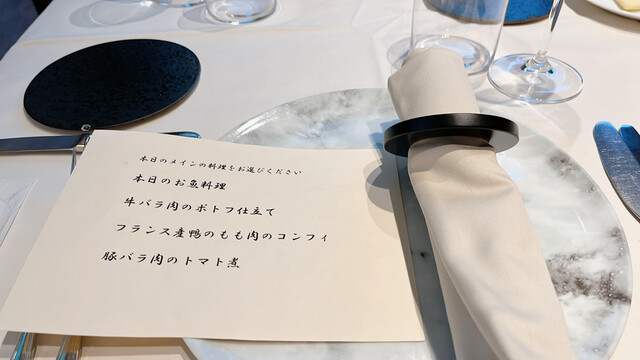 本日のメインの料理をお選びください
本日のお魚料理
牛バラ肉のポトフ仕立て
フランス産鴨のもも肉のコンフィ
豚バラ肉のトマト煮